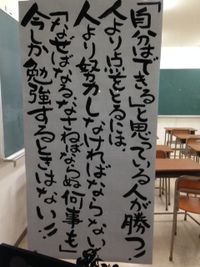 「自分はできる」と思っている人が勝つ!
人より点をとるには、
人より努力しなければならない
「なせばなるなさねばならぬ何事も」
今しか勉強するときはない!!